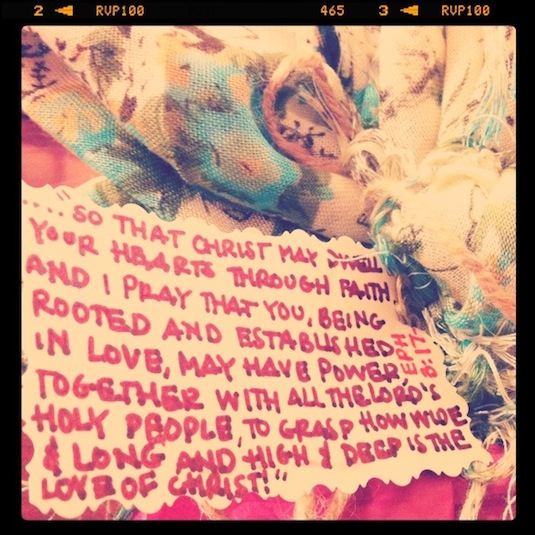 2 RVP100 465 3 RVP100
...."SO THAT CHRIST MAY DWELL
YOUR HEARTS THROUGH FAITH.
AND I PRAY THAT YOU, BEING
ROOTED AND ESTABLISHED
IN LOVE, MAY HAVE POWER,
TOGETHER WITH ALL THE LORD'S
HOLY PEOPLE, TO GRASP HOW WIDE
& LONG AND HIGH & DEEP IS THE
LOVE OF CHRIST!"
EPH